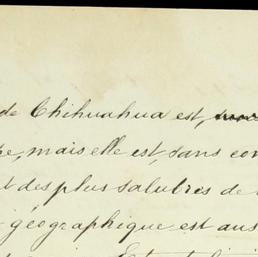 de Chihuahua est,
mais elle est, sans con
t des plus salubres de
géographique est aus